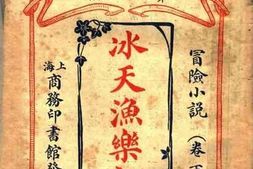 冒險小說
(卷
冰天漁樂
上海
商務印書館